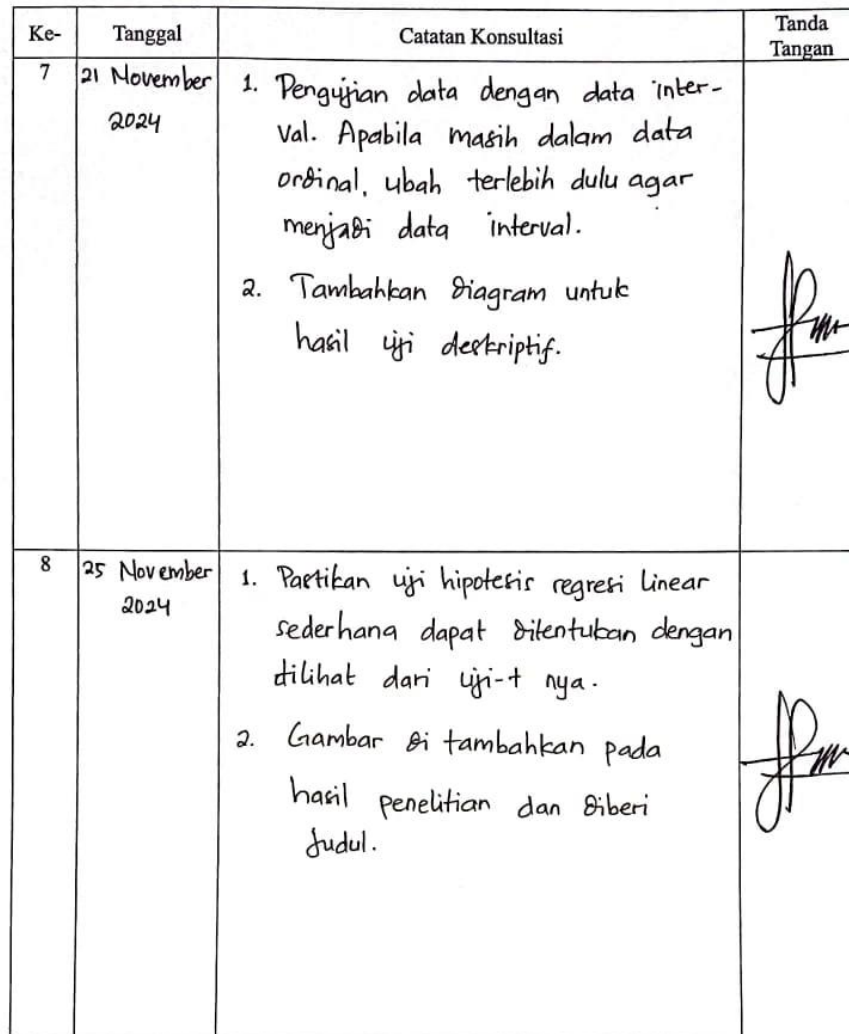 Ke- Tanggal Catatan Konsultasi Tanda Tangan
7 21 November 2024
1. Pengujian data dengan data inter-
val. Apabila masih dalam data
ordinal, ubah terlebih dulu agar
menjadi data interval.
2. Tambahkan diagram untuk
hasil uji deskriptif.
8 25 November 2024
1. Pastikan uji hipotesis regresi linear
sederhana dapat ditentukan dengan
dilihat dari uji-t nya.
2. Gambar di tambahkan pada
hasil penelitian dan diberi
judul.